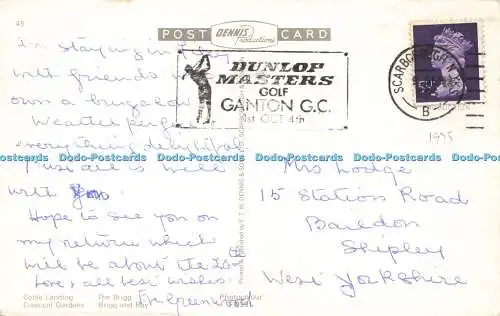 45
POST DENNIS Productions CARD
I'm staying in
with friends who
own a bungalow
Weather perfect
everything delightful
Trust all is well
with you.
Hope to see you on
my return which
will be about the 20th
Love & all best wishes.
E. M. Greenwood
DUNLOP
MASTERS
GOLF
GANTON G.C.
1st OCT 4th
SCARBOROUGH
B
1975
Mrs Lodge
15 Station Road
Baildon
Shipley
West Yorkshire
Coble Landing The Brigg
Crescent Gardens Brigg and Bay
Photocolour
Dodo-Postcards Dodo-Postcards Dodo-Postcards Dodo-Postcards Dodo-Postcards Dodo-Postcards